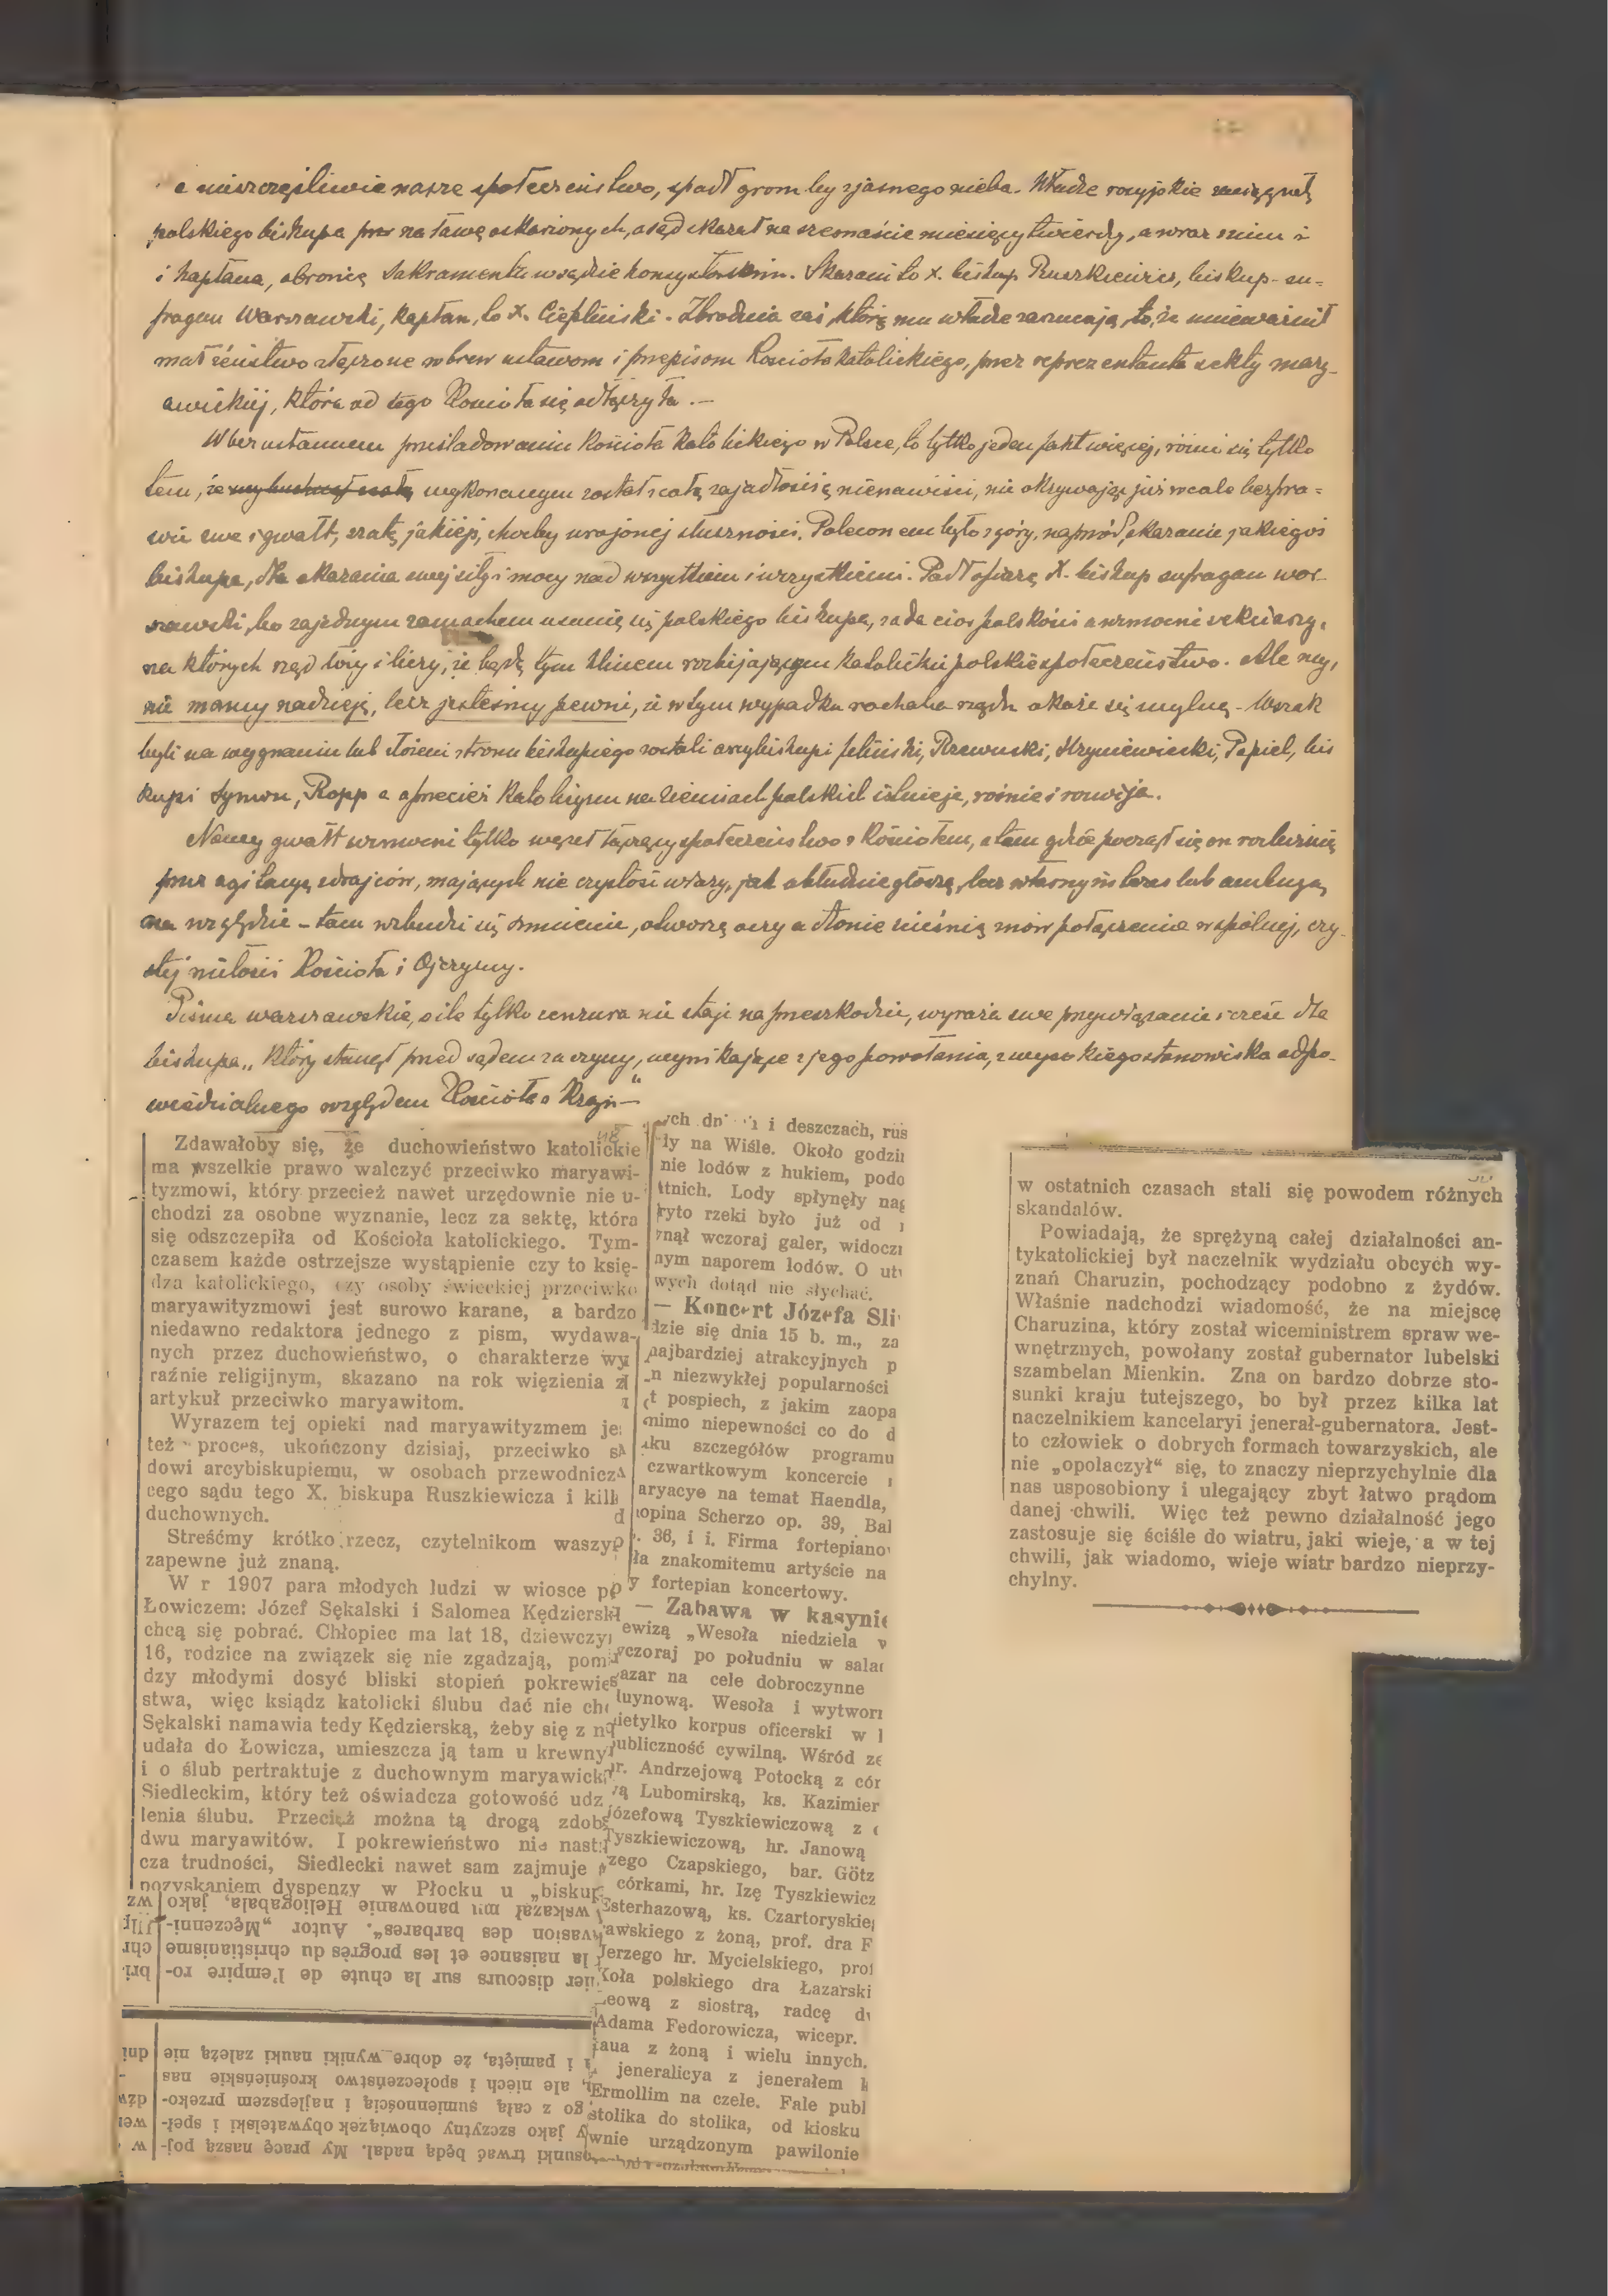 a nieszczęśliwie nasze społeczeństwo, spadł grom by z jasnego nieba. Władze rosyjskie
polskiego biskupa na ławę oskarżonych, a sąd skazał na szesnaście miesięcy twierdzy, a wraz z nim i
i kapłana, obronię Sakramentu w sądzie konsystorskim. Skazani to X. biskup Ruszkiewicz, biskup-su=
fragan Warszawski, kapłan, to X. Ciepliński. Zbrodnia zaś, którą mu władze zarzucają, to, że unieważnił
małżeństwo złączone wbrew ustawom i przepisom Kościoła katolickiego, przez reprezentanta sekty mary-
awickiej, która od tego Kościoła się odłączyła. —
W bezustannem prześladowaniu Kościoła katolickiego w Polsce, to tylko jeden fakt więcej, różni się tylko
tem, że wykonanym został z całą zajadłością nienawiści, nie okrywając już wcale bezpra=
wie swe i gwałt, szatą jakiejś, choćby urojonej słuszności. Poleconem było z góry, naprzód, skazanie jakiegoś
biskupa, dla okazania swej siły i mocy nad wszystkiem i wszystkiemi. Padł ofiarą X. biskup sufragan war-
szawski, bo za jednym zamachem usunie się polskiego biskupa, zada cios polskości a wzmocni sekciarzy,
na których rząd liczy i liczy, że będą tym klinem rozbijającym katolickie polskie społeczeństwo. Ale my,
nie mamy nadzieję, lecz jesteśmy pewni, że w tym wypadku rachuba rządu okaże się mylną. Wszak
byli na wygnaniu lub złożeni z tronu biskupiego zostali arcybiskupi Feliński, Rzewuski, Hryniewiecki, Popiel, bis
kupi Symon, Ropp a przecież katolicyzm na ziemiach polskich istnieje, rośnie i rozwija.
Nowy gwałt wzmocni tylko węzeł łączący społeczeństwo z Kościołem, a tam gdzie począł się on rozluźnić
przez agitacyę zdrajców, mających nie czystość wiary, jak obłudnie głoszą, lecz własny interes lub ambicyę
na względzie – tam wzbudzi się sumienie, otworzą oczy a dłonie zacieśnią znów połączenie w spólnej, czy-
stej miłości Kościoła i Ojczyzny.
Pisma warszawskie, o ile tylko cenzura nie staje na przeszkodzie, wyraża swe przywiązanie i cześć dla
biskupa „który stanął przed sądem za czyny, wynikające z jego powołania, z wysokiego stanowiska odpo-
wiedzialnego względem Kościoła i Kraju —"
Zdawałoby się, że duchowieństwo katolickie
ma wszelkie prawo walczyć przeciwko maryawi-
tyzmowi, który przecież nawet urzędownie nie u-
chodzi za osobne wyznanie, lecz za sektę, która
się odszczepiła od Kościoła katolickiego. Tym-
czasem każde ostrzejsze wystąpienie czy to księ-
dza katolickiego, czy osoby świeckiej przeciwko
maryawityzmowi jest surowo karane, a bardzo
niedawno redaktora jednego z pism, wydawa-
nych przez duchowieństwo, o charakterze wy
raźnie religijnym, skazano na rok więzienia z
artykuł przeciwko maryawitom.
Wyrazem tej opieki nad maryawityzmem je
też proces, ukończony dzisiaj, przeciwko s
dowi arcybiskupiemu, w osobach przewodnicz
cego sądu tego X. biskupa Ruszkiewicza i kil
duchownych.
Streśćmy krótko rzecz, czytelnikom waszy
zapewne już znaną.
W r 1907 para młodych ludzi w wiosce po
Łowiczem: Józef Sękalski i Salomea Kędziersk
chcą się pobrać. Chłopiec ma lat 18, dziewczy
16, rodzice na związek się nie zgadzają, pom
dzy młodymi dosyć bliski stopień pokrewie
stwa, więc ksiądz katolicki ślubu dać nie ch
Sękalski namawia tedy Kędzierską, żeby się z n
udała do Łowicza, umieszcza ją tam u krewny
i o ślub pertraktuje z duchownym maryawick
Siedleckim, który też oświadcza gotowość udz
lenia ślubu. Przecież można tą drogą zdob
dwu maryawitów. I pokrewieństwo nie nast
cza trudności, Siedlecki nawet sam zajmuje
pozyskaniem dyspenzy w Płocku u „biskup
wskazał mu panowanie Heliogabala, jako wz
vasion des barbares". Autor „Męczenni-
la naisance et les progrès du christianisme chr
ier discours sur la chute de l'empire ro- bri
i pamięta, że dobre wyniki nauki zależą nie dni
ale niech i społeczeństwo krośnieńskie nas
go z całą sumiennością i najlepszem przeko-
jako szczytny obowiązek obywatelski i speł-
osunki trwać będą nadal. My pracę naszą poj- w
ych dn i deszczach, rus
ły na Wiśle. Około godzi
nie lodów z hukiem, podo
tnich. Lody spłynęły nag
ryto rzeki było już od
nął wczoraj galer, widocz
nym naporem lodów. O ut
wych dotąd nie słychać.
— Koncert Józefa Śli
dzie się dnia 15 b. m., za
najbardziej atrakcyjnych p
n niezwykłej popularności
t pospiech, z jakim zaopa
mimo niepewności co do d
ku szczegółów programu
czwartkowym koncercie
aryacye na temat Haendla,
opina Scherzo op. 39, Bal
. 36, i i. Firma fortepiano
ła znakomitemu artyście na
y fortepian koncertowy.
— Zabawa w kasynie
ewizą „Wesoła niedziela w
wczoraj po południu w sala
azar na cele dobroczynne
uynową. Wesoła i wytwor
ietylko korpus oficerski w
ubliczność cywilną. Wśród ze
hr. Andrzejową Potocką z cór
ą Lubomirską, ks. Kazimier
józefową Tyszkiewiczową z
Tyszkiewiczową, hr. Janową
zego Czapskiego, bar. Götz
córkami, hr. Izę Tyszkiewicz
sterhazową, ks. Czartoryskie
awskiego z żoną, prof. dra F
Jerzego hr. Mycielskiego, prof
Koła polskiego dra Łazarski
eową z siostrą, radcę d
Adama Fedorowicza, wicepr.
aua z żoną i wielu innych.
jeneralicya z jenerałem
Ermollim na czele. Fale publ
stolika do stolika, od kiosku
wnie urządzonym pawilonie
w ostatnich czasach stali się powodem różnych
skandalów.
Powiadają, że sprężyną całej działalności an-
tykatolickiej był naczelnik wydziału obcych wy-
znań Charuzin, pochodzący podobno z żydów.
Właśnie nadchodzi wiadomość, że na miejscę
Charuzina, który został wiceministrem spraw we-
wnętrznych, powołany został gubernator lubelski
szambelan Mienkin. Zna on bardzo dobrze sto-
sunki kraju tutejszego, bo był przez kilka lat
naczelnikiem kancelaryi jenerał-gubernatora. Jest-
to człowiek o dobrych formach towarzyskich, ale
nie „opolaczył" się, to znaczy nieprzychylnie dla
nas usposobiony i ulegający zbyt łatwo prądom
danej chwili. Więc też pewno działalność jego
zastosuje się ściśle do wiatru, jaki wieje, a w tej
chwili, jak wiadomo, wieje wiatr bardzo nieprzy-
chylny.